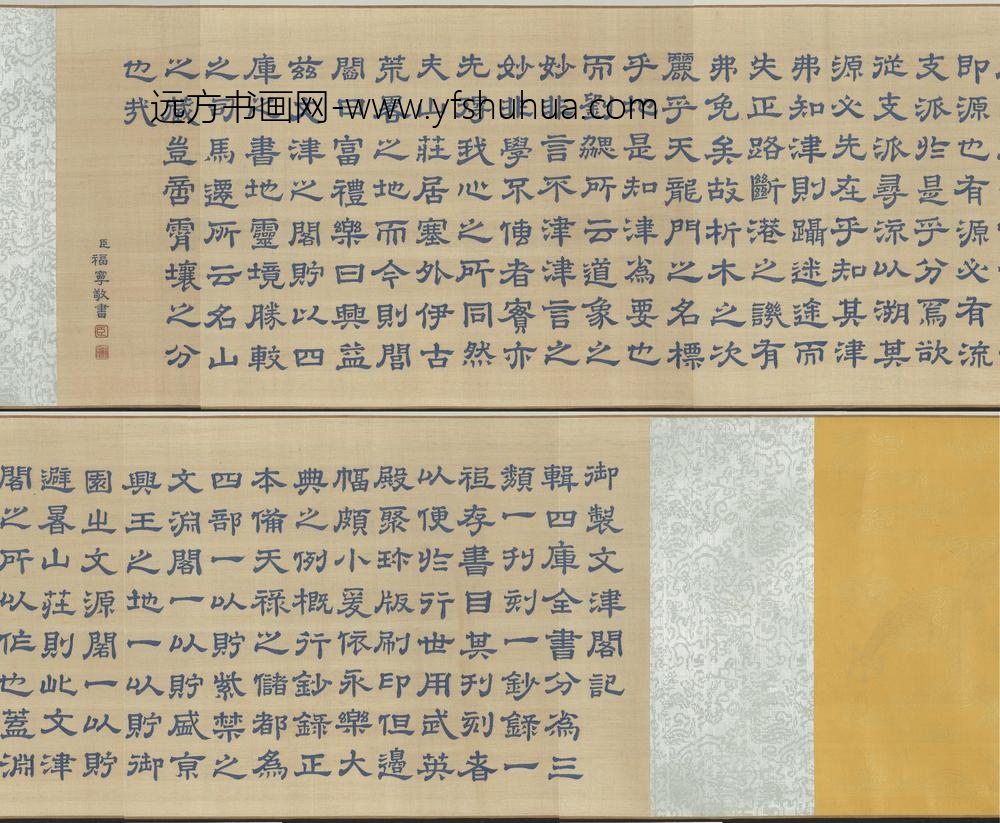 御製文津閣記
輯四庫全書分為三
類一刊刻一鈔錄一
祗存書目其刊刻者
以便於行世用武英
殿聚珍版刷印但邊
幅頗小爰依永樂大
典之例概行鈔錄正
本備天祿之儲都為
四部一以貯紫禁之
文淵閣一以貯盛京
興王之地一以貯御
園之文源閣一以貯
避暑山莊則此文津
閣之所以作也蓋淵
即源也有源必有流
支派於是乎分焉欲
從支派尋流以溯其
源必先在乎知其津
弗知津則躡迷途而
失正路斷港之譏有
弗免矣故析木之次
麗乎天龍門之名標
乎地是知津為要也
而劉勰所云道象之
妙非言不津津言之
妙非學不傳者實亦
先得我心之所同然
夫山莊居塞外伊古
荒略之地而今則閭
閻日富禮樂日興益
茲文津之閣貯以四
庫之書地靈境勝較
之司馬遷所云名山
之藏豈啻霄壤之分
也哉
臣福寧敬書
远方书画网-www.yfshuhua.com